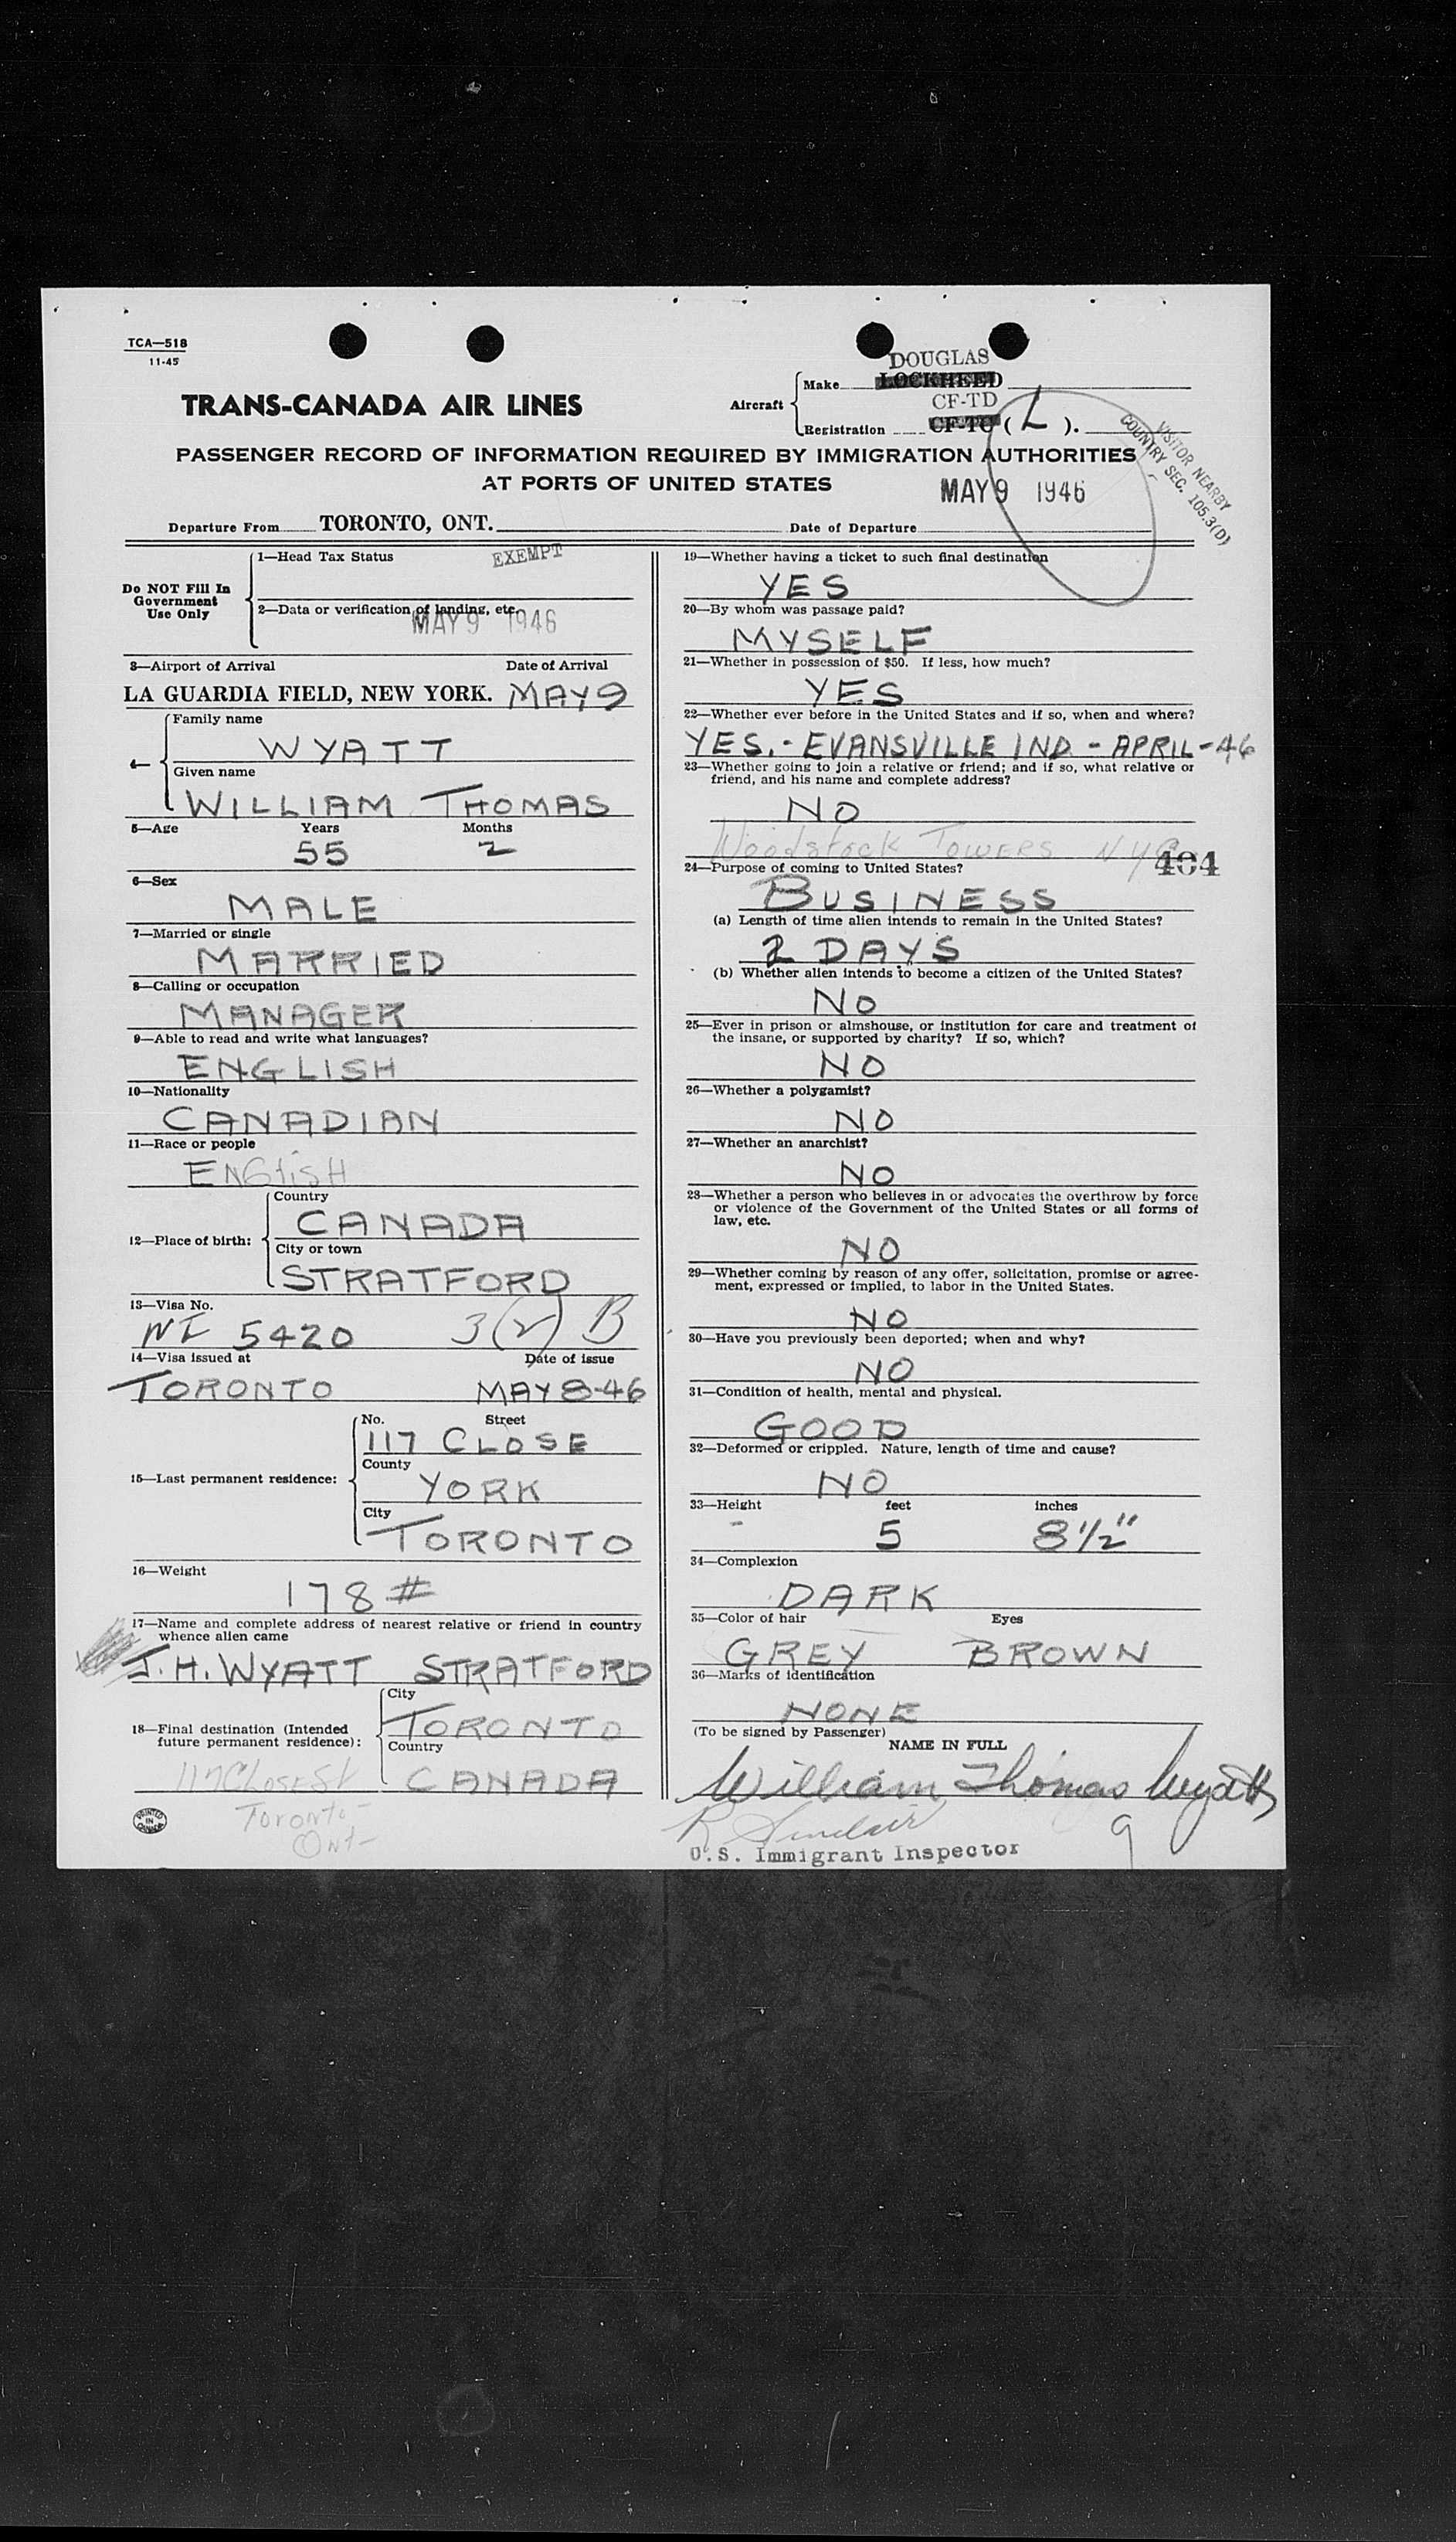 TCA—518
11-45
DOUGLAS
Make LOCKHEED
TRANS-CANADA AIR LINES
Aircraft
CF-TD
Registration CF-TC ( L ).
VISITOR NEARBY
COUNTRY SEC. 105.3(D)
PASSENGER RECORD OF INFORMATION REQUIRED BY IMMIGRATION AUTHORITIES
AT PORTS OF UNITED STATES
MAY 9 1946
Departure From TORONTO, ONT.
Date of Departure
Do NOT Fill In
Government
Use Only
1—Head Tax Status EXEMPT
2—Data or verification of landing, etc.
MAY 9 1946
3—Airport of Arrival Date of Arrival
LA GUARDIA FIELD, NEW YORK. MAY 9
4—
Family name
WYATT
Given name
WILLIAM THOMAS
5—Age Years Months
55 2
6—Sex
MALE
7—Married or single
MARRIED
8—Calling or occupation
MANAGER
9—Able to read and write what languages?
ENGLISH
10—Nationality
CANADIAN
11—Race or people
ENGLISH
12—Place of birth:
Country
CANADA
City or town
STRATFORD
13—Visa No.
NI 5420 3(2) B
14—Visa issued at Date of issue
TORONTO MAY 8-46
15—Last permanent residence:
No. Street
117 CLOSE
County
YORK
City
TORONTO
16—Weight
178 #
17—Name and complete address of nearest relative or friend in country
whence alien came
J.H. WYATT STRATFORD
18—Final destination (Intended
future permanent residence):
City
TORONTO
Country
CANADA
117 Close St
Toronto-
Ont-
PRINTED
IN
CANADA
19—Whether having a ticket to such final destination
YES
20—By whom was passage paid?
MYSELF
21—Whether in possession of $50. If less, how much?
YES
22—Whether ever before in the United States and if so, when and where?
YES. - EVANSVILLE IND. - APRIL - 46
23—Whether going to join a relative or friend; and if so, what relative or
friend, and his name and complete address?
NO
Woodstock TOWERS NYC
404
24—Purpose of coming to United States?
BUSINESS
(a) Length of time alien intends to remain in the United States?
2 DAYS
(b) Whether alien intends to become a citizen of the United States?
NO
25—Ever in prison or almshouse, or institution for care and treatment of
the insane, or supported by charity? If so, which?
NO
26—Whether a polygamist?
NO
27—Whether an anarchist?
NO
28—Whether a person who believes in or advocates the overthrow by force
or violence of the Government of the United States or all forms of
law, etc.
NO
29—Whether coming by reason of any offer, solicitation, promise or agree-
ment, expressed or implied, to labor in the United States.
NO
30—Have you previously been deported; when and why?
NO
31—Condition of health, mental and physical.
GOOD
32—Deformed or crippled. Nature, length of time and cause?
NO
33—Height feet inches
5 8 1/2"
34—Complexion
DARK
35—Color of hair Eyes
GREY BROWN
36—Marks of identification
NONE
(To be signed by Passenger)
NAME IN FULL
William Thomas Wyatt
R Sinclair 9
U.S. Immigrant Inspector